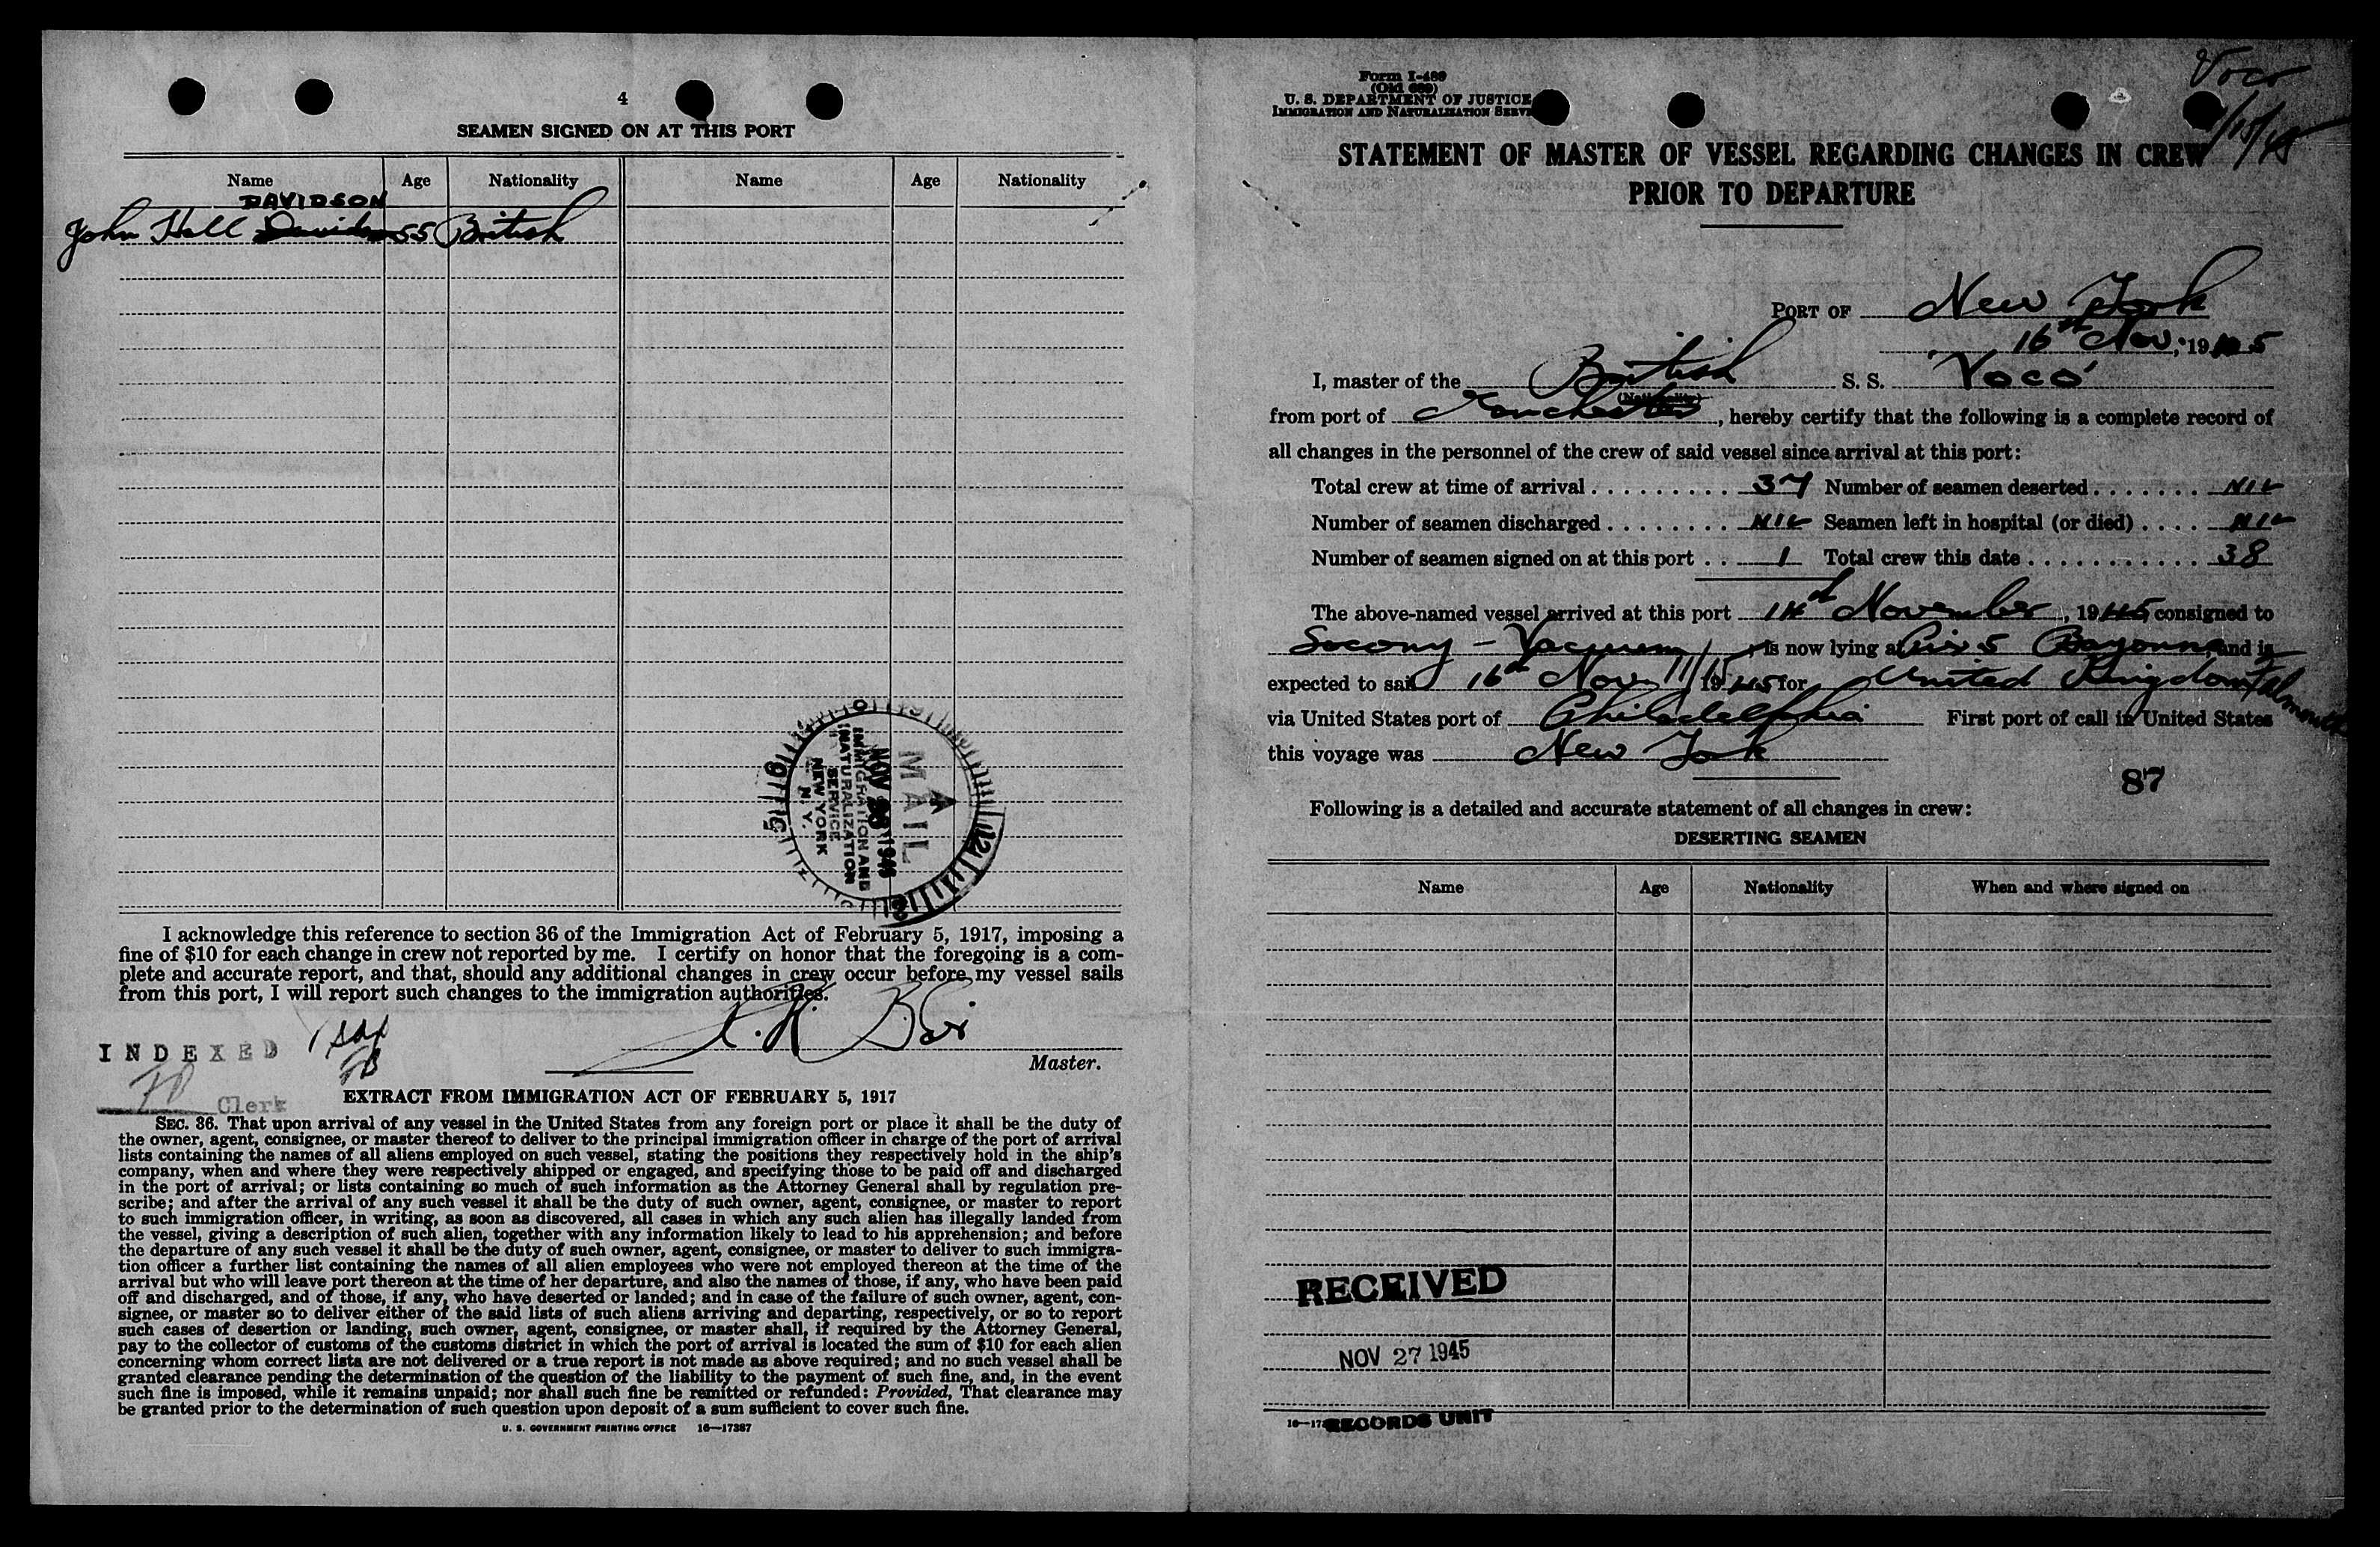 4
SEAMEN SIGNED ON AT THIS PORT
Name Age Nationality Name Age Nationality
DAVIDSON
John Hall 55 British
MAIL
NOV 1945
IMMIGRATION AND
NATURALIZATION
SERVICE
NEW YORK
N. Y.
I acknowledge this reference to section 36 of the Immigration Act of February 5, 1917, imposing a
fine of $10 for each change in crew not reported by me. I certify on honor that the foregoing is a com-
plete and accurate report, and that, should any additional changes in crew occur before my vessel sails
from this port, I will report such changes to the immigration authorities.
Master.
INDEXED
Clerk
EXTRACT FROM IMMIGRATION ACT OF FEBRUARY 5, 1917
SEC. 36. That upon arrival of any vessel in the United States from any foreign port or place it shall be the duty of
the owner, agent, consignee, or master thereof to deliver to the principal immigration officer in charge of the port of arrival
lists containing the names of all aliens employed on such vessel, stating the positions they respectively hold in the ship's
company, when and where they were respectively shipped or engaged, and specifying those to be paid off and discharged
in the port of arrival; or lists containing so much of such information as the Attorney General shall by regulation pre-
scribe; and after the arrival of any such vessel it shall be the duty of such owner, agent, consignee, or master to report
to such immigration officer, in writing, as soon as discovered, all cases in which any such alien has illegally landed from
the vessel, giving a description of such alien, together with any information likely to lead to his apprehension; and before
the departure of any such vessel it shall be the duty of such owner, agent, consignee, or master to deliver to such immigra-
tion officer a further list containing the names of all alien employees who were not employed thereon at the time of the
arrival but who will leave port thereon at the time of her departure, and also the names of those, if any, who have been paid
off and discharged, and of those, if any, who have deserted or landed; and in case of the failure of such owner, agent, con-
signee, or master so to deliver either of the said lists of such aliens arriving and departing, respectively, or so to report
such cases of desertion or landing, such owner, agent, consignee, or master shall, if required by the Attorney General,
pay to the collector of customs of the customs district in which the port of arrival is located the sum of $10 for each alien
concerning whom correct lists are not delivered or a true report is not made as above required; and no such vessel shall be
granted clearance pending the determination of the question of the liability to the payment of such fine, and, in the event
such fine is imposed, while it remains unpaid; nor shall such fine be remitted or refunded: Provided, That clearance may
be granted prior to the determination of such question upon deposit of a sum sufficient to cover such fine.
U. S. GOVERNMENT PRINTING OFFICE 16—17387
Voco
Form I-489
(Old 689)
U. S. DEPARTMENT OF JUSTICE
IMMIGRATION AND NATURALIZATION SERVI
STATEMENT OF MASTER OF VESSEL REGARDING CHANGES IN CREW
PRIOR TO DEPARTURE
PORT OF New York
16th Nov, 1945
I, master of the British S. S. "Voco"
(Nationality)
from port of Manchester, hereby certify that the following is a complete record of
all changes in the personnel of the crew of said vessel since arrival at this port:
Total crew at time of arrival . . . . . . . . . 37 Number of seamen deserted . . . . . . . NIL
Number of seamen discharged . . . . . . . . NIL Seamen left in hospital (or died) . . . . NIL
Number of seamen signed on at this port . . 1 Total crew this date . . . . . . . . . . . 38
The above-named vessel arrived at this port 14th November, 1945, consigned to
Socony - Vacuum, is now lying at Pier 5 Bayonne, and is
expected to sail 16th Nov 11/15 1945 for United Kingdom Falmouth
via United States port of Philadelphia First port of call in United States
this voyage was New York
87
Following is a detailed and accurate statement of all changes in crew:
DESERTING SEAMEN
Name Age Nationality When and where signed on
RECEIVED
NOV 27 1945
RECORDS UNIT